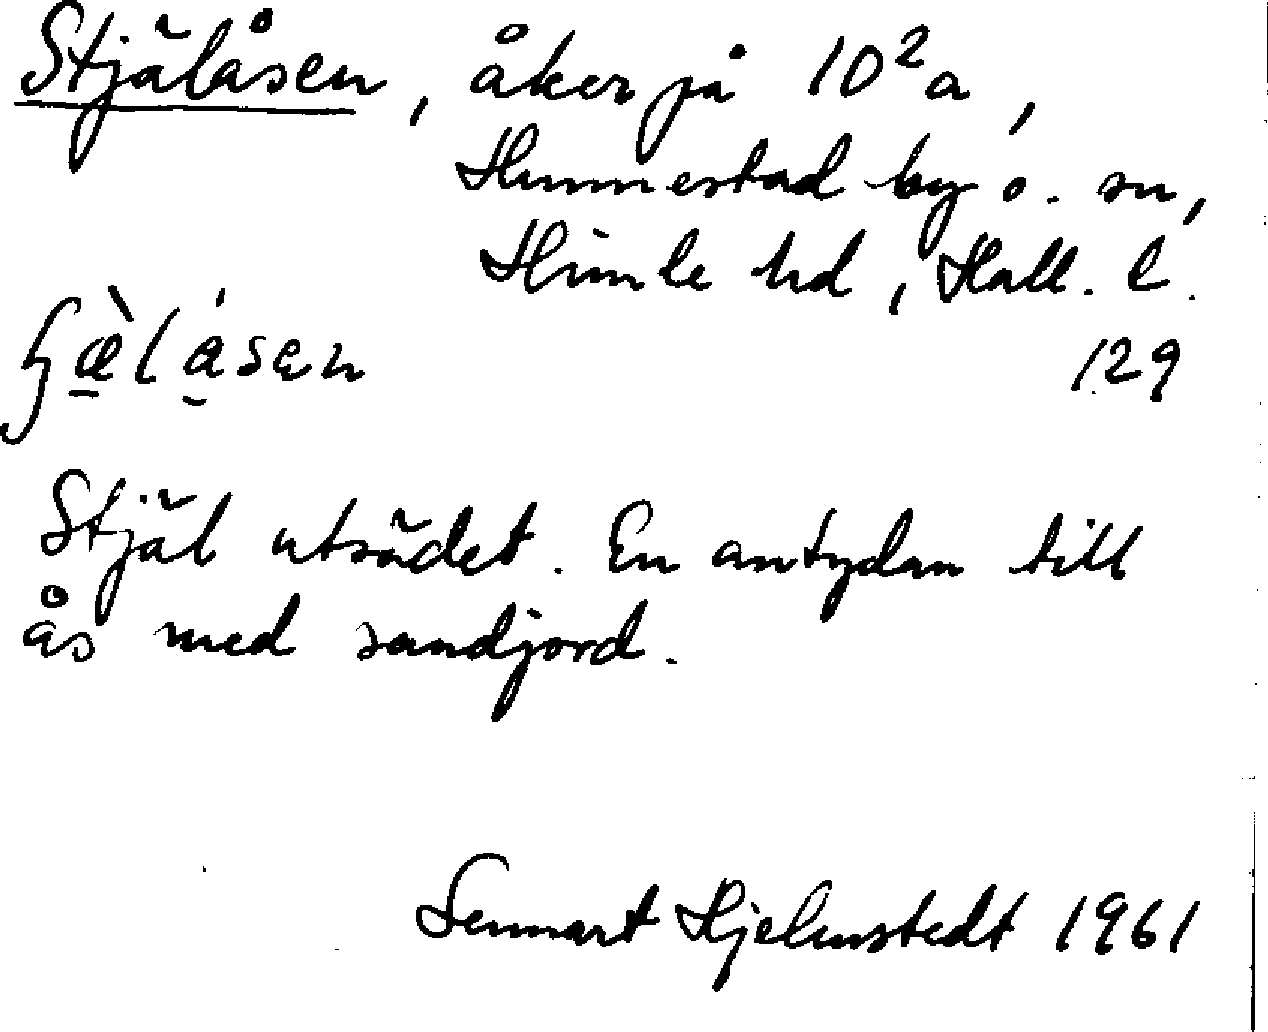 Stjälåsen, åker på 10²a,
Hunnestad by o. sn,
Himle hd, Hall. l.
129
Stjäl utsädet. En antydan till
ås med sandjord.
Lennart Hjelmstedt 1961